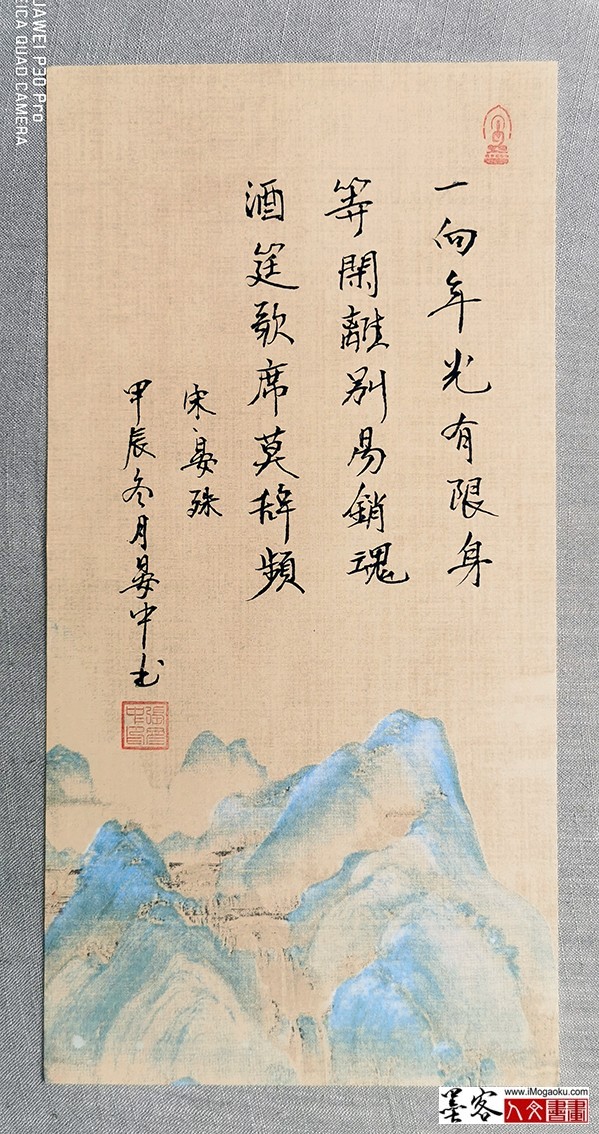 一向年光有限身
等閑離別易銷魂
酒筵歌席莫辞頻
宋、晏殊
甲辰冬月晏中书
HUAWEI P30 Pro
LEICA QUAD CAMERA
墨客
www.iMogaoku.com
人文書畫